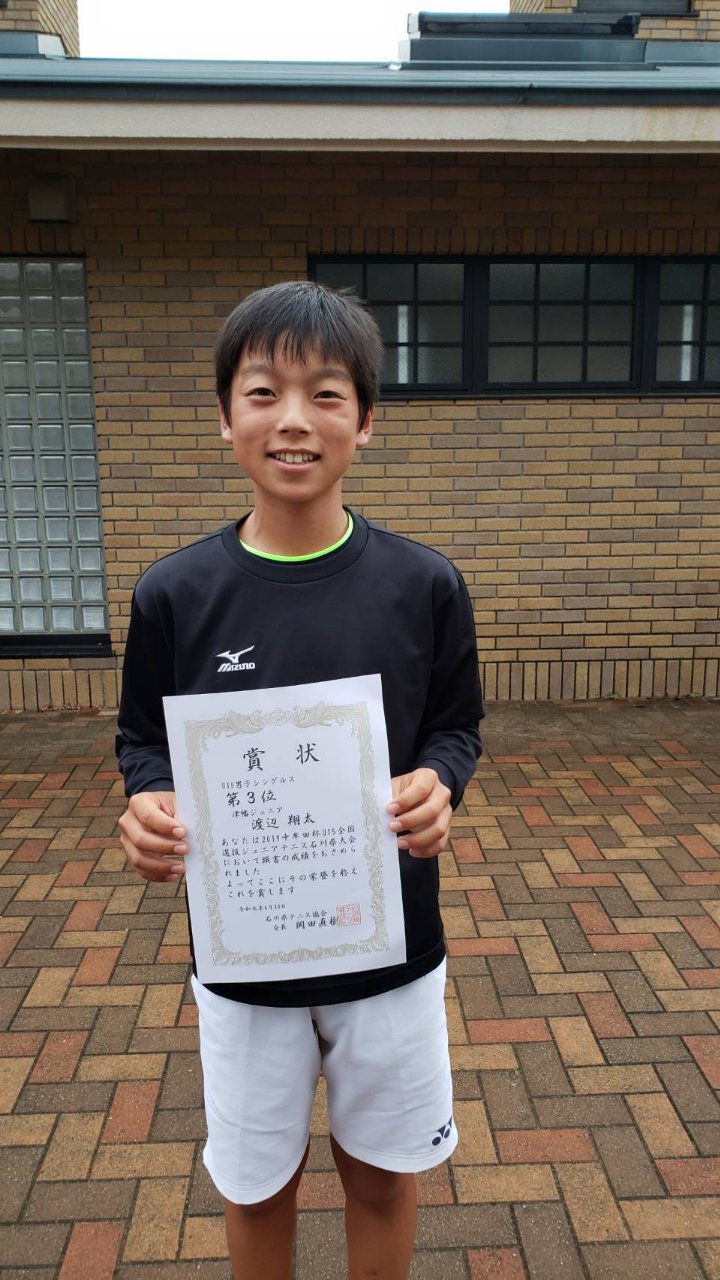 MIZUNO
賞状
U15男子シングルス
第3位
津幡ジュニア
渡辺 翔太
あなたは2019中牟田杯U15全国
選抜ジュニアテニス石川県大会
において頭書の成績をおさめら
れました
よってここにその栄誉を称え
これを賞します
石川県テニス協会
会長 岡田直樹